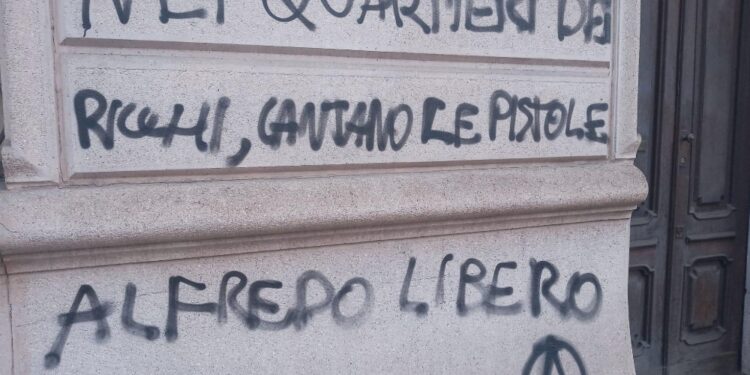 NEI QUARTIERI DEI
RICCHI, CANTANO LE PISTOLE
ALFREDO LIBERO